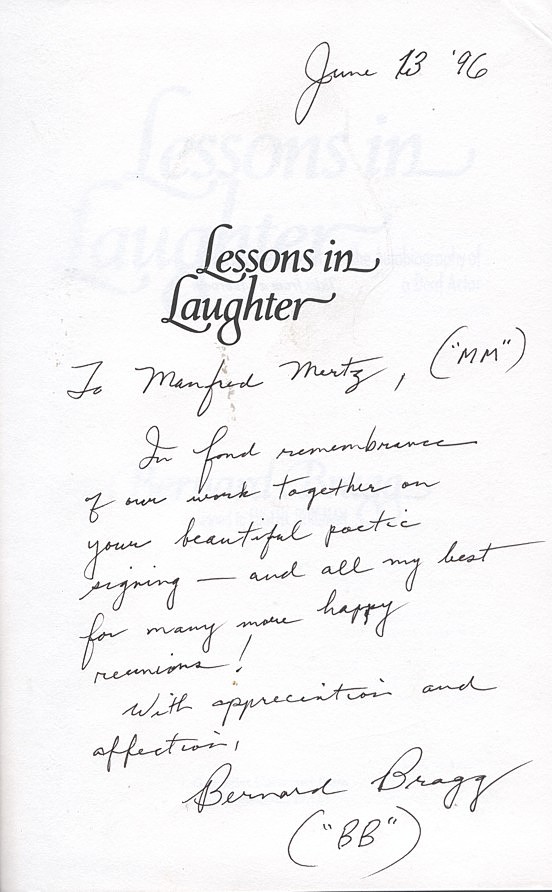 June 13 '96
Lessons in
Laughter
To Manfred Mertz, ("MM")
In fond remembrance
of our work together on
your beautiful poetic
signing — and all my best
for many more happy
reunions!
With appreciation and
affection,
Bernard Bragg
("BB")